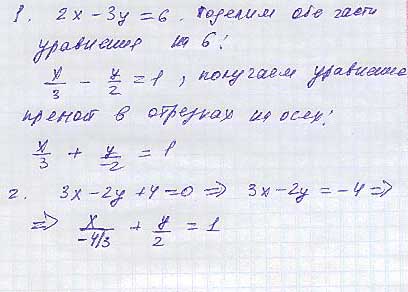 1. 2x - 3y = 6. Поделим обе части
уравнения на 6:
x/3 - y/2 = 1, получаем уравнение
прямой в отрезках на осях:
x/3 + y/-2 = 1
2. 3x - 2y + 4 = 0 => 3x - 2y = -4 =>
=> x/-4/3 + y/2 = 1